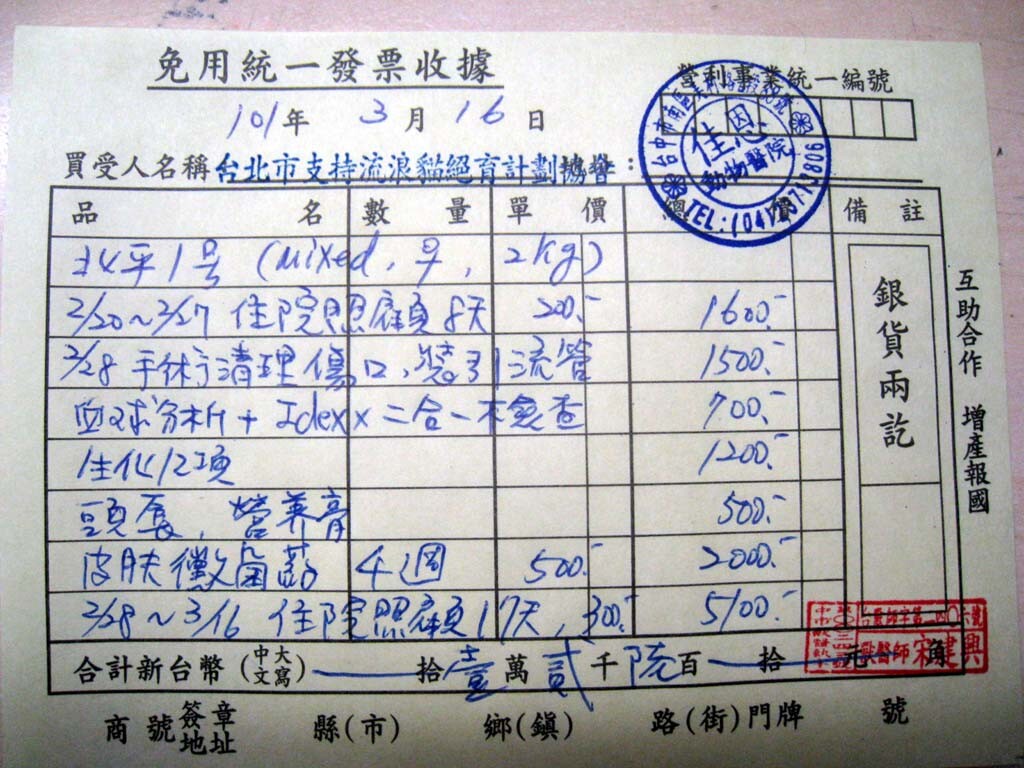 免用統一發票收據
營利事業統一編號
101年 3月16日
佳恩
動物醫院
買受人名稱 台北市支持流浪貓絕育計劃協會：
品名 數量 單價 總價 備註
北平1号 (Mixed, 早, 2kg)
2/20~2/27 住院照顧 8天 200.- 1600.-
2/28 手術清理傷口, 裝引流管 1500.-
血球分析 + Idexx 二合一 檢查 700.-
生化12項 1200.-
頭辰, 營养膏 500.-
皮肤黴菌葯 4週 500.- 2000.-
2/28~3/16 住院照顧 17天, 300.- 5100.-
銀貨兩訖
互助合作 增產報國
合計新台幣(中文大寫) 拾壹萬貳千陸百 拾 元 角
獸醫師 宋建興
商號簽章地址 縣(市) 鄉(鎮) 路(街)門牌 號